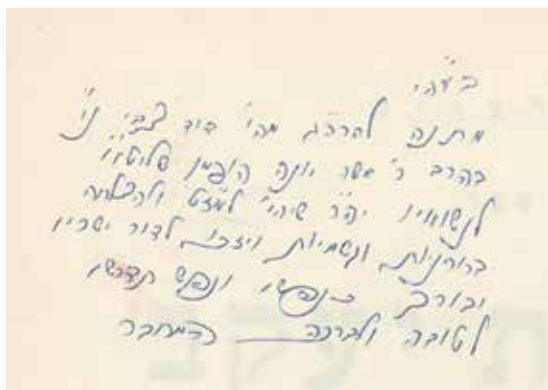 בעה"י
מתנה להרה"ג מהו' דוד צבי ני"ו
בהרב ר' אשר יונה הופמן שליט"א
לנשואיו יה"ר שיהי' למז"ט ולהצלחה
ברוחניות וגשמיות ויזכו לדור ישרים
יבורך בנפשו ונפש תדרשו
לטובה ולברכה המחבר